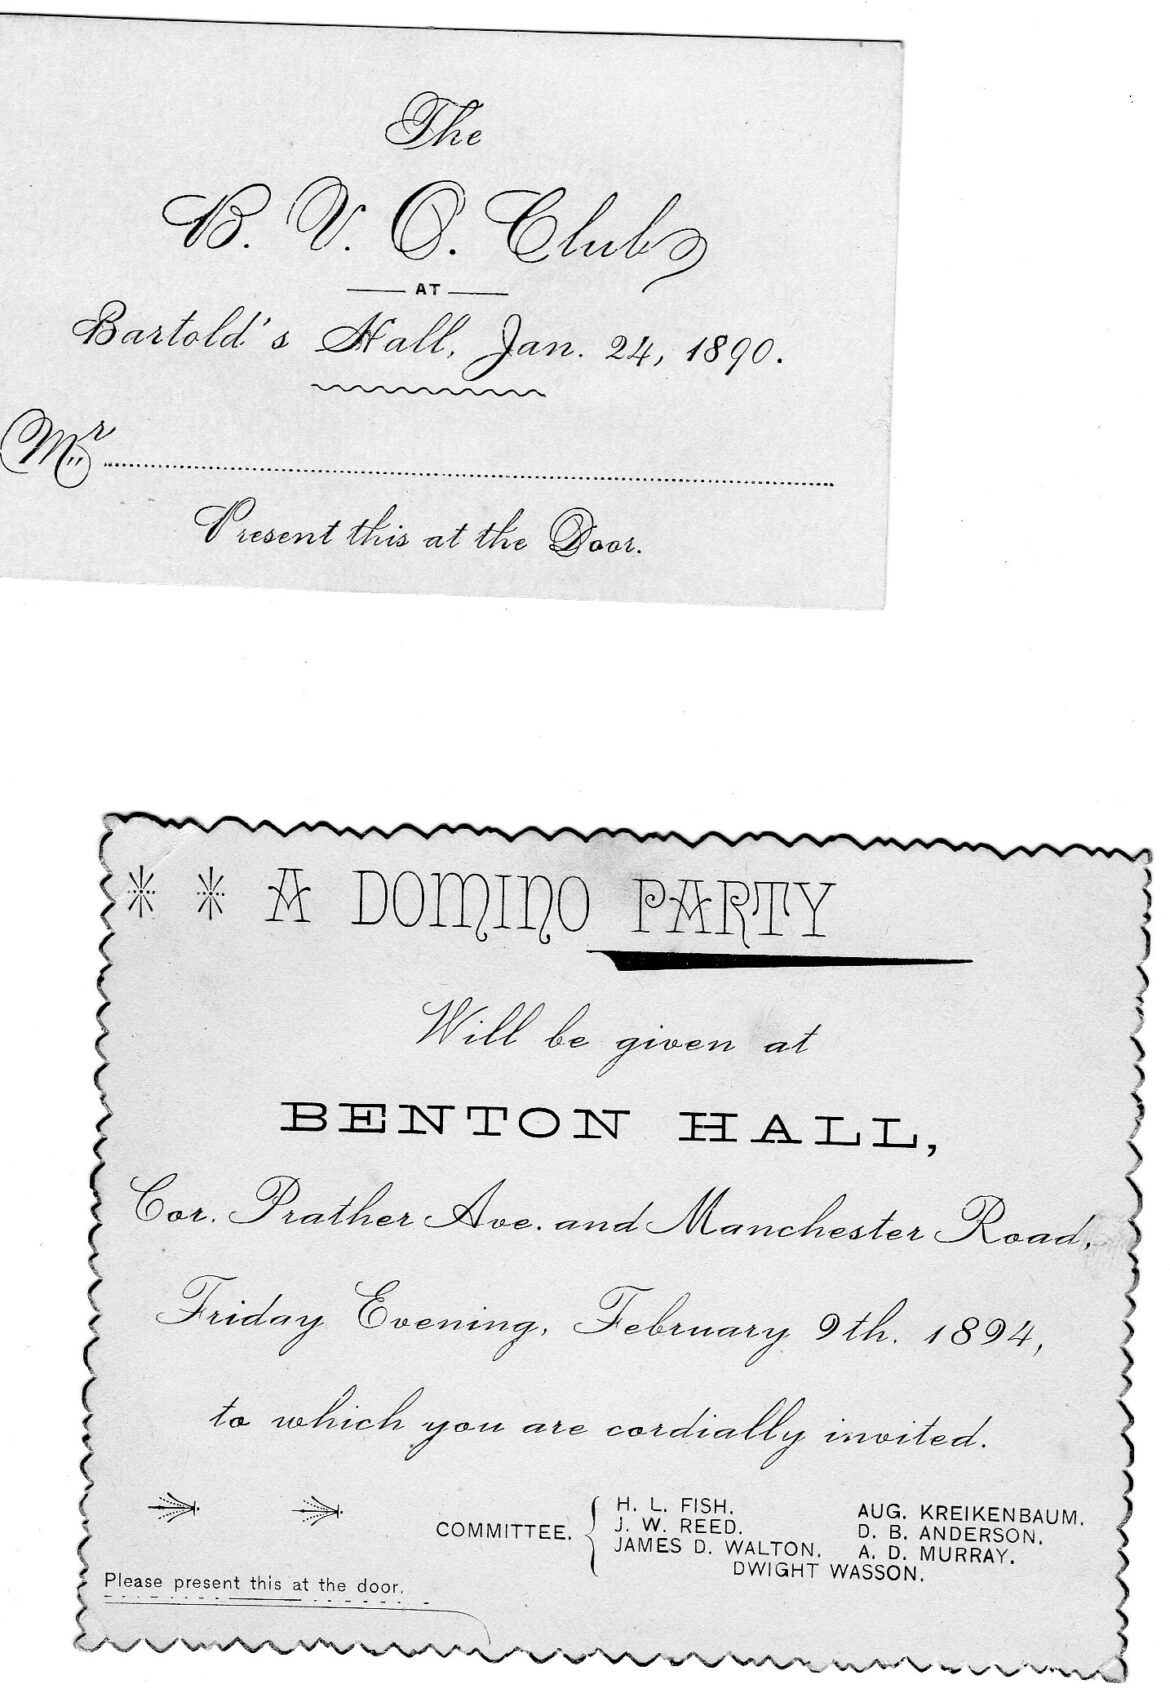 The
B. V. O. Club
AT
Bartold's Hall, Jan. 24, 1890.
Mr
Present this at the Door.
A DOMINO PARTY
Will be given at
BENTON HALL,
Cor. Prather Ave. and Manchester Road,
Friday Evening, February 9th. 1894,
to which you are cordially invited.
COMMITTEE.
H. L. FISH. AUG. KREIKENBAUM.
J. W. REED. D. B. ANDERSON.
JAMES D. WALTON. A. D. MURRAY.
DWIGHT WASSON.
Please present this at the door.